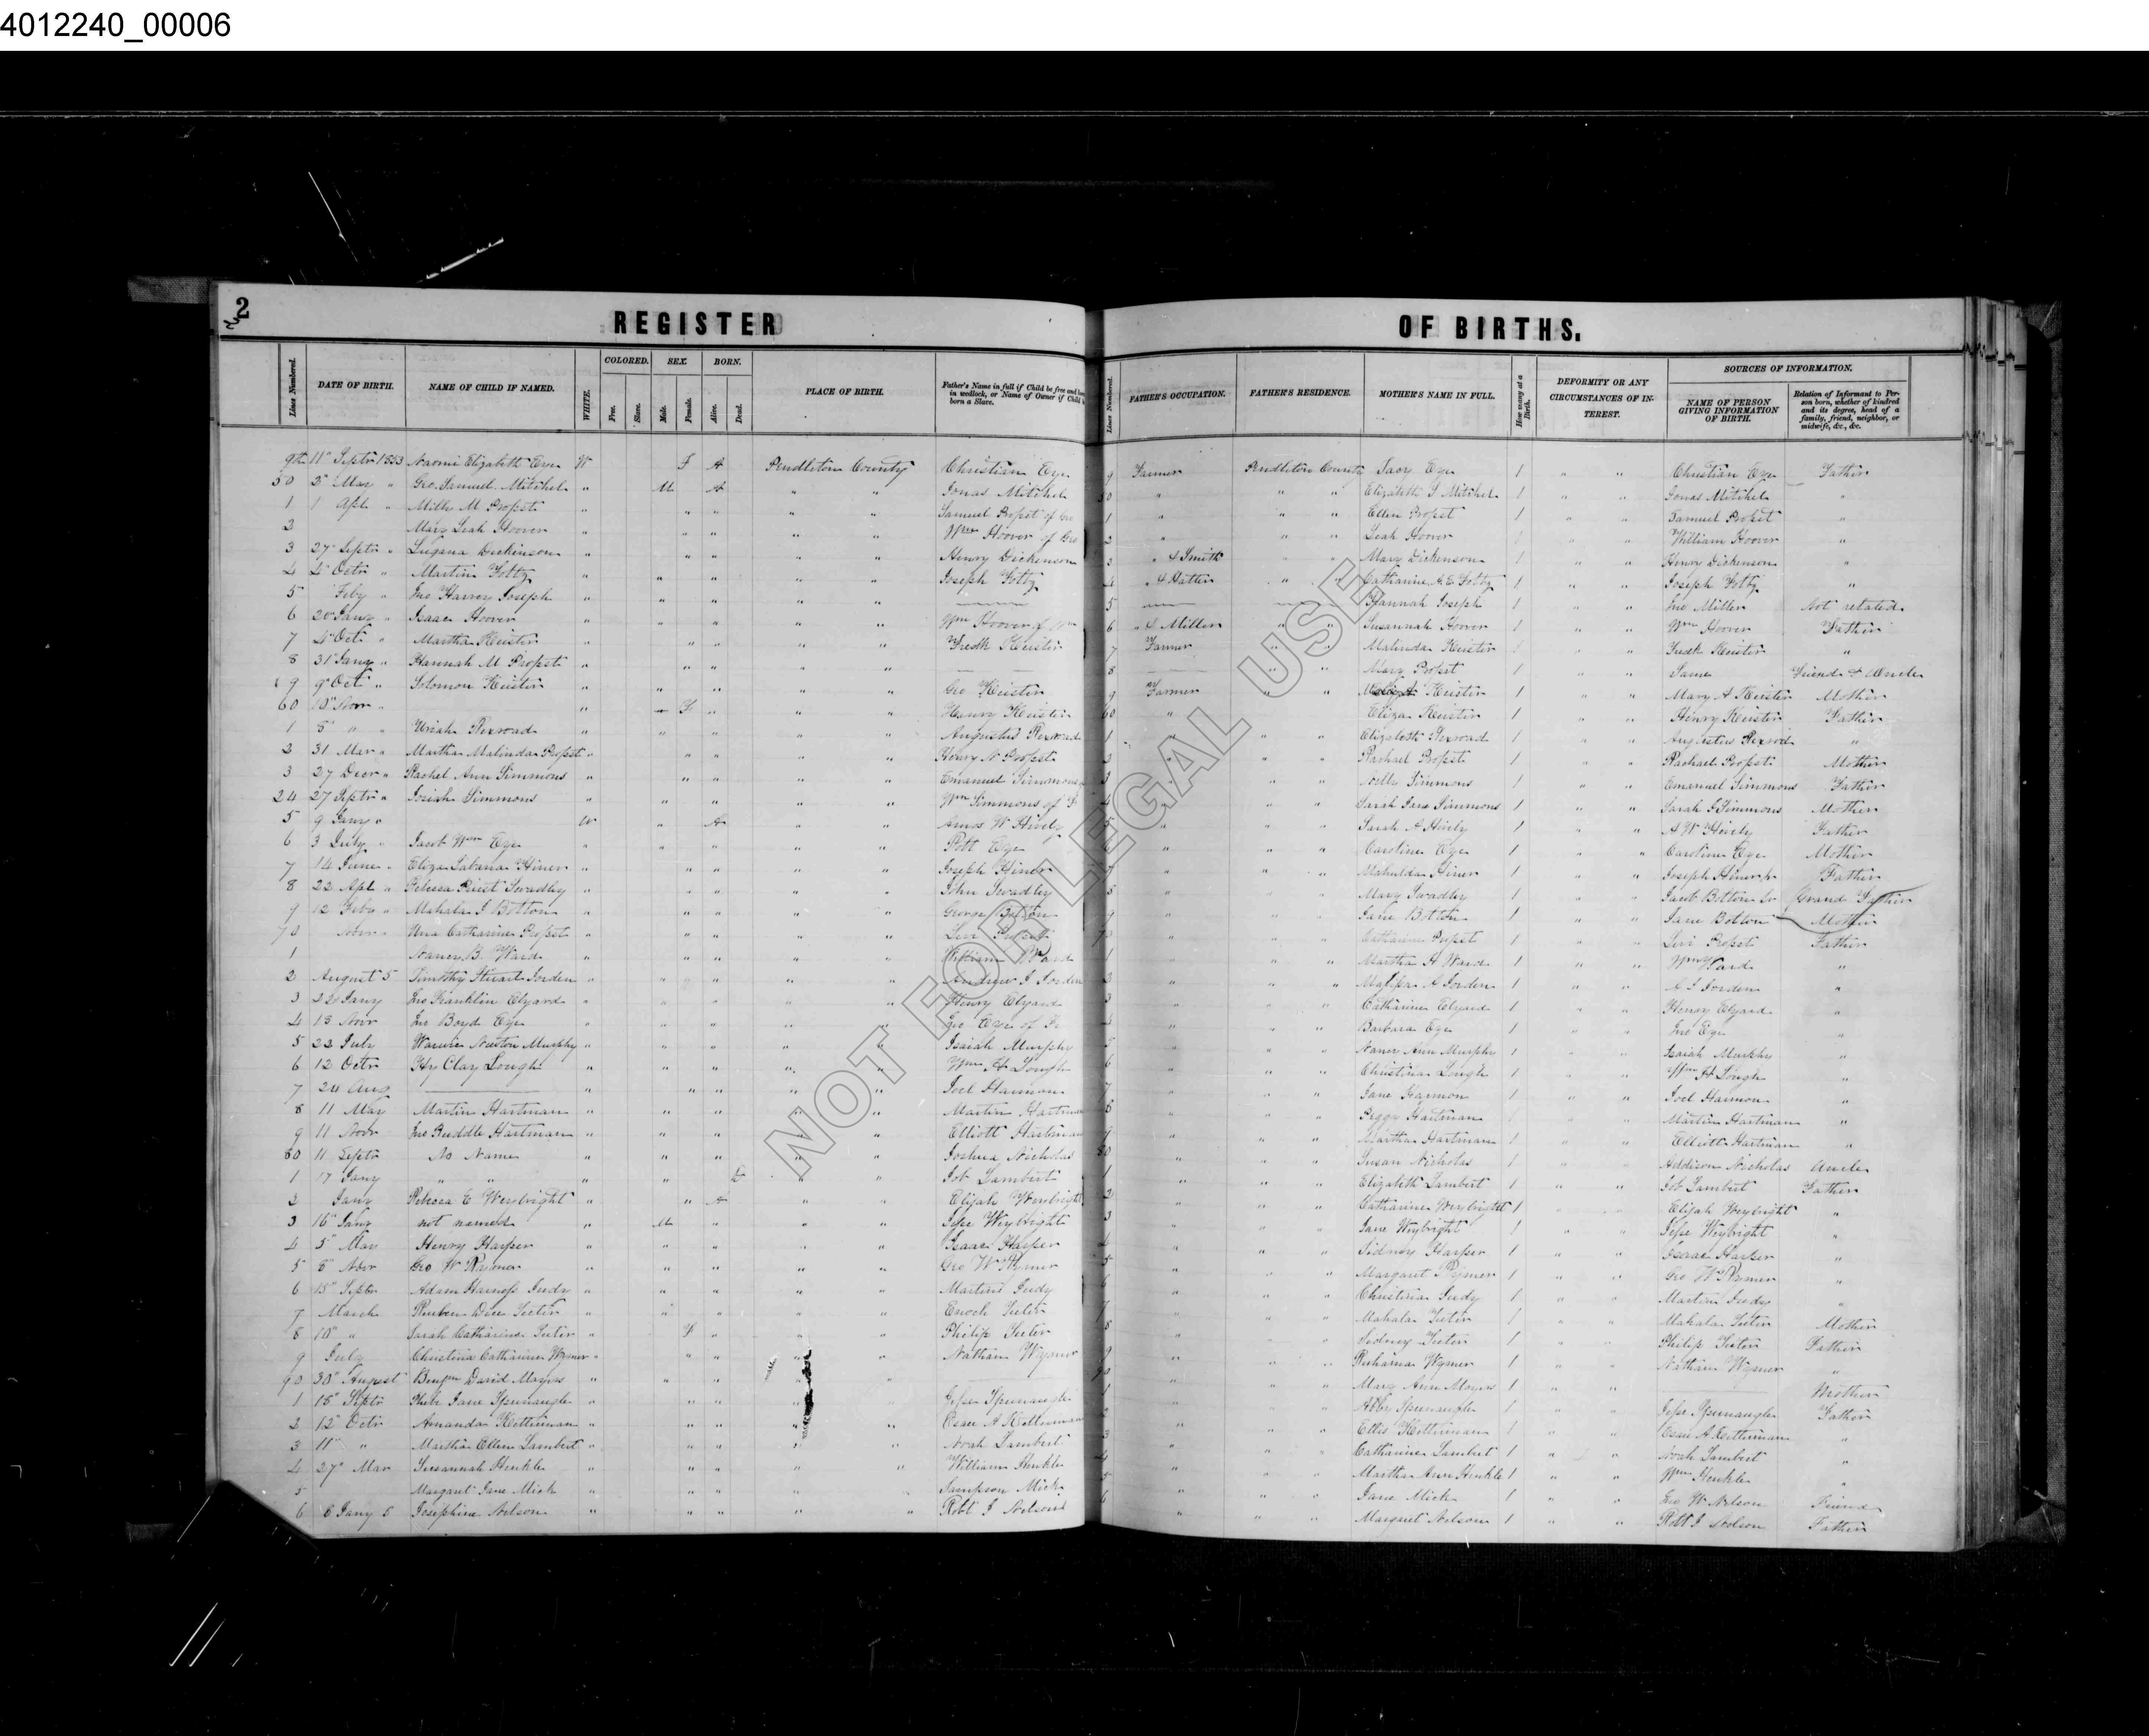 4012240_00006
2
REGISTER OF BIRTHS.
Lines Numbered. DATE OF BIRTH. NAME OF CHILD IF NAMED. WHITE. COLORED. Free. Slave. SEX. Male. Female. BORN. Alive. Dead. PLACE OF BIRTH. Father's Name in full if Child be free and born in wedlock, or Name of Owner if Child born a Slave. Lines Numbered. FATHER'S OCCUPATION. FATHER'S RESIDENCE. MOTHER'S NAME IN FULL. How many at a Birth. DEFORMITY OR ANY CIRCUMSTANCES OF INTEREST. SOURCES OF INFORMATION. NAME OF PERSON GIVING INFORMATION OF BIRTH. Relation of Informant to Person born, whether of kindred and its degree, head of a family, friend, neighbor, or midwife, &c., &c.
11" Septr 1853 Naomi Elizabeth Eye W F A Pendleton County Christian Eye 9 Farmer Pendleton County Eye 1 " " Christian Eye Father
50 Mar " Geo. Samuel Mitchel " M A " " Jonas Mitchel 50 " " " Elizabeth Mitchel 1 " " Jonas Mitchel "
1 1 Apl " M Propst " " " " " Samuel Propst of Geo 1 " " " Ellen Propst 1 " " Samuel Propst "
2 Mary Leah Hoover " " " " " Wm Hoover of Geo 2 " " " Leah Hoover 1 " " William Hoover "
3 27 Septr " Dickinson " " " " " Henry Dickenson 3 " & Smith " " Mary Dickenson 1 " " Henry Dickenson "
4 4" Octr " Martin " " " " " Joseph 4 " & Hatter " " Catharine 1 " " Joseph "
5 Feby " Jno Harvey Joseph " " " " " 5 " " Hannah Joseph 1 " " Jno Miller Not related
6 20" Jany " Isaac Hoover " " " " " Wm Hoover of Wm 6 " & Miller " " Susannah Hoover 1 " " Wm Hoover Father
7 4" Oct " Martha Keister " " " " " Fredk Keister 7 Farmer " " Malinda Keister 1 " " Fredk Keister "
8 31" Jany " Hannah M Propst " " " " " 8 " " Mary Propst 1 " " Same Friend & Uncle
9 9" Oct " Solomon Keister " " " " " Geo Keister 9 Farmer " " Keister 1 " " Mary A Keister Mother
60 10" Novr " " F " " " Henry Keister 60 " Eliza Keister 1 " " Henry Keister Father
1 5" " " Uriah Rexroad " " " " " Augustus Rexroad 1 " " " Elizabeth Rexroad 1 " " Augustus Rexrod "
2 31 Mar " Martha Malinda Propst " " " " Henry N Propst 2 " " " Rachael Propst 1 " " Rachael Propst Mother
3 27 Decr " Rachel Ann Simmons " " " " " Emanuel Simmons 3 " " " Simmons 1 " " Emanuel Simmons Father
27 Septr " Josiah Simmons " " " " " Wm Simmons of 4 " " " Sarah Jane Simmons 1 " " Sarah J Simmons Mother
5 9 Jany " W " A " " Amos W Hively 5 " " " Sarah A Hively 1 " " A W Hively Father
6 3 July " Jacob Wm Eye " " " " " Robt Eye 6 " " " Caroline Eye 1 " " Caroline Eye Mother
7 14 June " Eliza Hiner " " " " " Joseph Hiner 7 " " " Mahulda Hiner 1 " " Joseph Hiner jr Father
8 22 Apl " Rebecca Swadley " " " " " John Swadley 8 " " " Mary Swadley 1 " " Jacob Botton Sr Grand Father
9 12 Feby " Mahala J Botton " " " " " George Botton 9 " " " Jane Botton 1 " " Jane Botton Mother
70 Novr " Una Catharine Propst " " " " " Levi Propst 70 " " " Catharine Propst 1 " " Levi Propst Father
1 Nancy B. Ward " " " " " William Ward 1 " " " Martha H Ward 1 " " Wm Ward "
2 August 5 Timothy Stuart Jorden " " " " " Andrew J Jorden 2 " " " Malissa Jorden 1 " " A J Jorden "
3 22 Jany Jno Franklin Elyard " " " " " Henry Elyard 3 " " " Catharine Elyard 1 " " Henry Elyard "
4 13 Novr Jno Boyd Eye " " " " " Jno Eye of 4 " " " Barbara Eye 1 " " Jno Eye "
5 22 July Newton Murphy " " " " " Isaiah Murphy 5 " " " Nancy Ann Murphy 1 " " Isaiah Murphy "
6 12 Octr Hy Clay Lough " " " " " Wm H Lough 6 " " " Christina Lough 1 " " Wm H Lough "
7 24 Aug " " " " " Joel Harmon 7 " " " Jane Harmon 1 " " Joel Harmon "
8 11 May Martin Hartman " " " " " Martin Hartman 8 " " " Peggy Hartman 1 " " Martin Hartman "
9 11 Novr Jno Buddle Hartman " " " " " Elliott Hartman 9 " " " Martha Hartman 1 " " Elliott Hartman "
80 11 Septr No Name " " " " " Joshua Nicholas 80 " " " Susan Nicholas 1 " " Addison Nicholas Uncle
1 17 Jany " " " " " " Job Lambert 1 " " " Elizabeth Lambert 1 " " Job Lambert Father
2 Jany Rebecca E Weybright " " A " " Elijah Weybright 2 " " " Catharine Weybright 1 " " Elijah Weybright "
3 16" Jany not named " M " " " Jesse Weybright 3 " " " Jane Weybright 1 " " Jesse Weybright "
4 5" May Henry Harper " " " " " Isaac Harper 4 " " " Sidney Harper 1 " " Isaac Harper "
5 Novr Geo W Rymer " " " " " Geo W Rymer 5 " " " Margaret Rymer 1 " " Geo W Rymer "
6 15" Septr Adam Harness Judy " " " " " Martin Judy 6 " " " Christina Judy 1 " " Martin Judy "
7 March Reuben Dice Teeter " " " " " Enoch Teeter 7 " " " Mahala Teeter 1 " " Mahala Teeter Mother
8 10" " Sarah Catharine Teeter " F " " " Philip Teeter 8 " " " Sidney Teeter 1 " " Philip Teeter Father
9 July Christina Catharine Wymer " " " " " Nathan Wymer 9 " " " Wymer 1 " " Nathan Wymer "
90 30" August Benjm David Moyers " " " " " 90 " " " Mary Ann Moyers 1 " " Mother
1 15" Septr Jane " " " " " Jesse 1 " " " 1 " " Jesse Father
2 12" Octr Amanda Ketterman " " " " " A Ketterman 2 " " " Ketterman 1 " " A Ketterman "
3 11" " Martha Ellen Lambert " " " " " Noah Lambert 3 " " " Catharine Lambert 1 " " Noah Lambert "
4 27" Mar Susannah Henkle " " " " " William Henkle 4 " " " Martha Ann Henkle 1 " " Wm Henkle "
5 Margaret Jane Mick " " " " " Sampson Mick 5 " " " Jane Mick 1 " " Jno W Nelson Friend
6 Jany Josephine Nelson " " " " " Robt J Nelson 6 " " " Margaret Nelson 1 " " Robt J Nelson Father
NOT FOR LEGAL USE